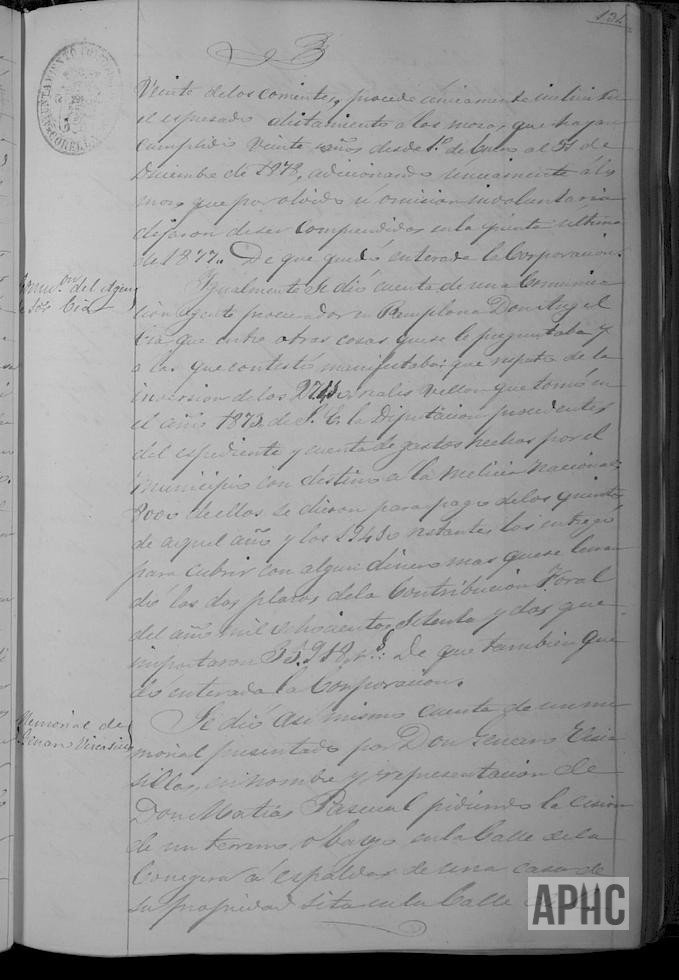 131
3
AYUNTAMIENTO CONST
CORELLA
Veinte de los corrientes, procede únicamente incluir en
el espresado alistamiento a los mozos que hayan
cumplido veinte años desde 1º de Enero al 31 de
Diciembre de 1878, adicionando unicamente á los
mozos que por olvido ú omision involuntaria
dejaron de ser comprendidos en la quinta ultima
de 1877. De que quedó enterada la Corporacion.
Comu.on del Agen
te Sor Cia
Igualmente se dió cuenta de una comunica
cion agente procurador en Pamplona Don Angel
Cia que entre otras cosas que se le preguntaba y
a las que contestó, manifestaba: que respeto de la
inversion de los reales vellon que tomó en
el año 1873 de S. E. la Diputacion procedentes
del espediente y cuenta de gastos hechos por el
Municipio con destino a la Melicia Nacional,
8000 de ellos se dieron para pago de los quintos
de aquel año y los restantes los entregó
para cubrir con algun dinero mas que se le man
dó los dos plazos de la Contribucion Foral
del año mil ochocientos setenta y dos que
importaron r.s De que tambien que
dó enterada la Corporacion.
Memorial de
Genaro
Se dió asi mismo cuenta de un me
morial presentado por Don Genaro
en nombre y representacion de
Don Matías Pascual pidiendo la cesion
de un terreno o bago en la Calle de la
á espaldas de una casa de
su propiedad sita en la Calle
APHC